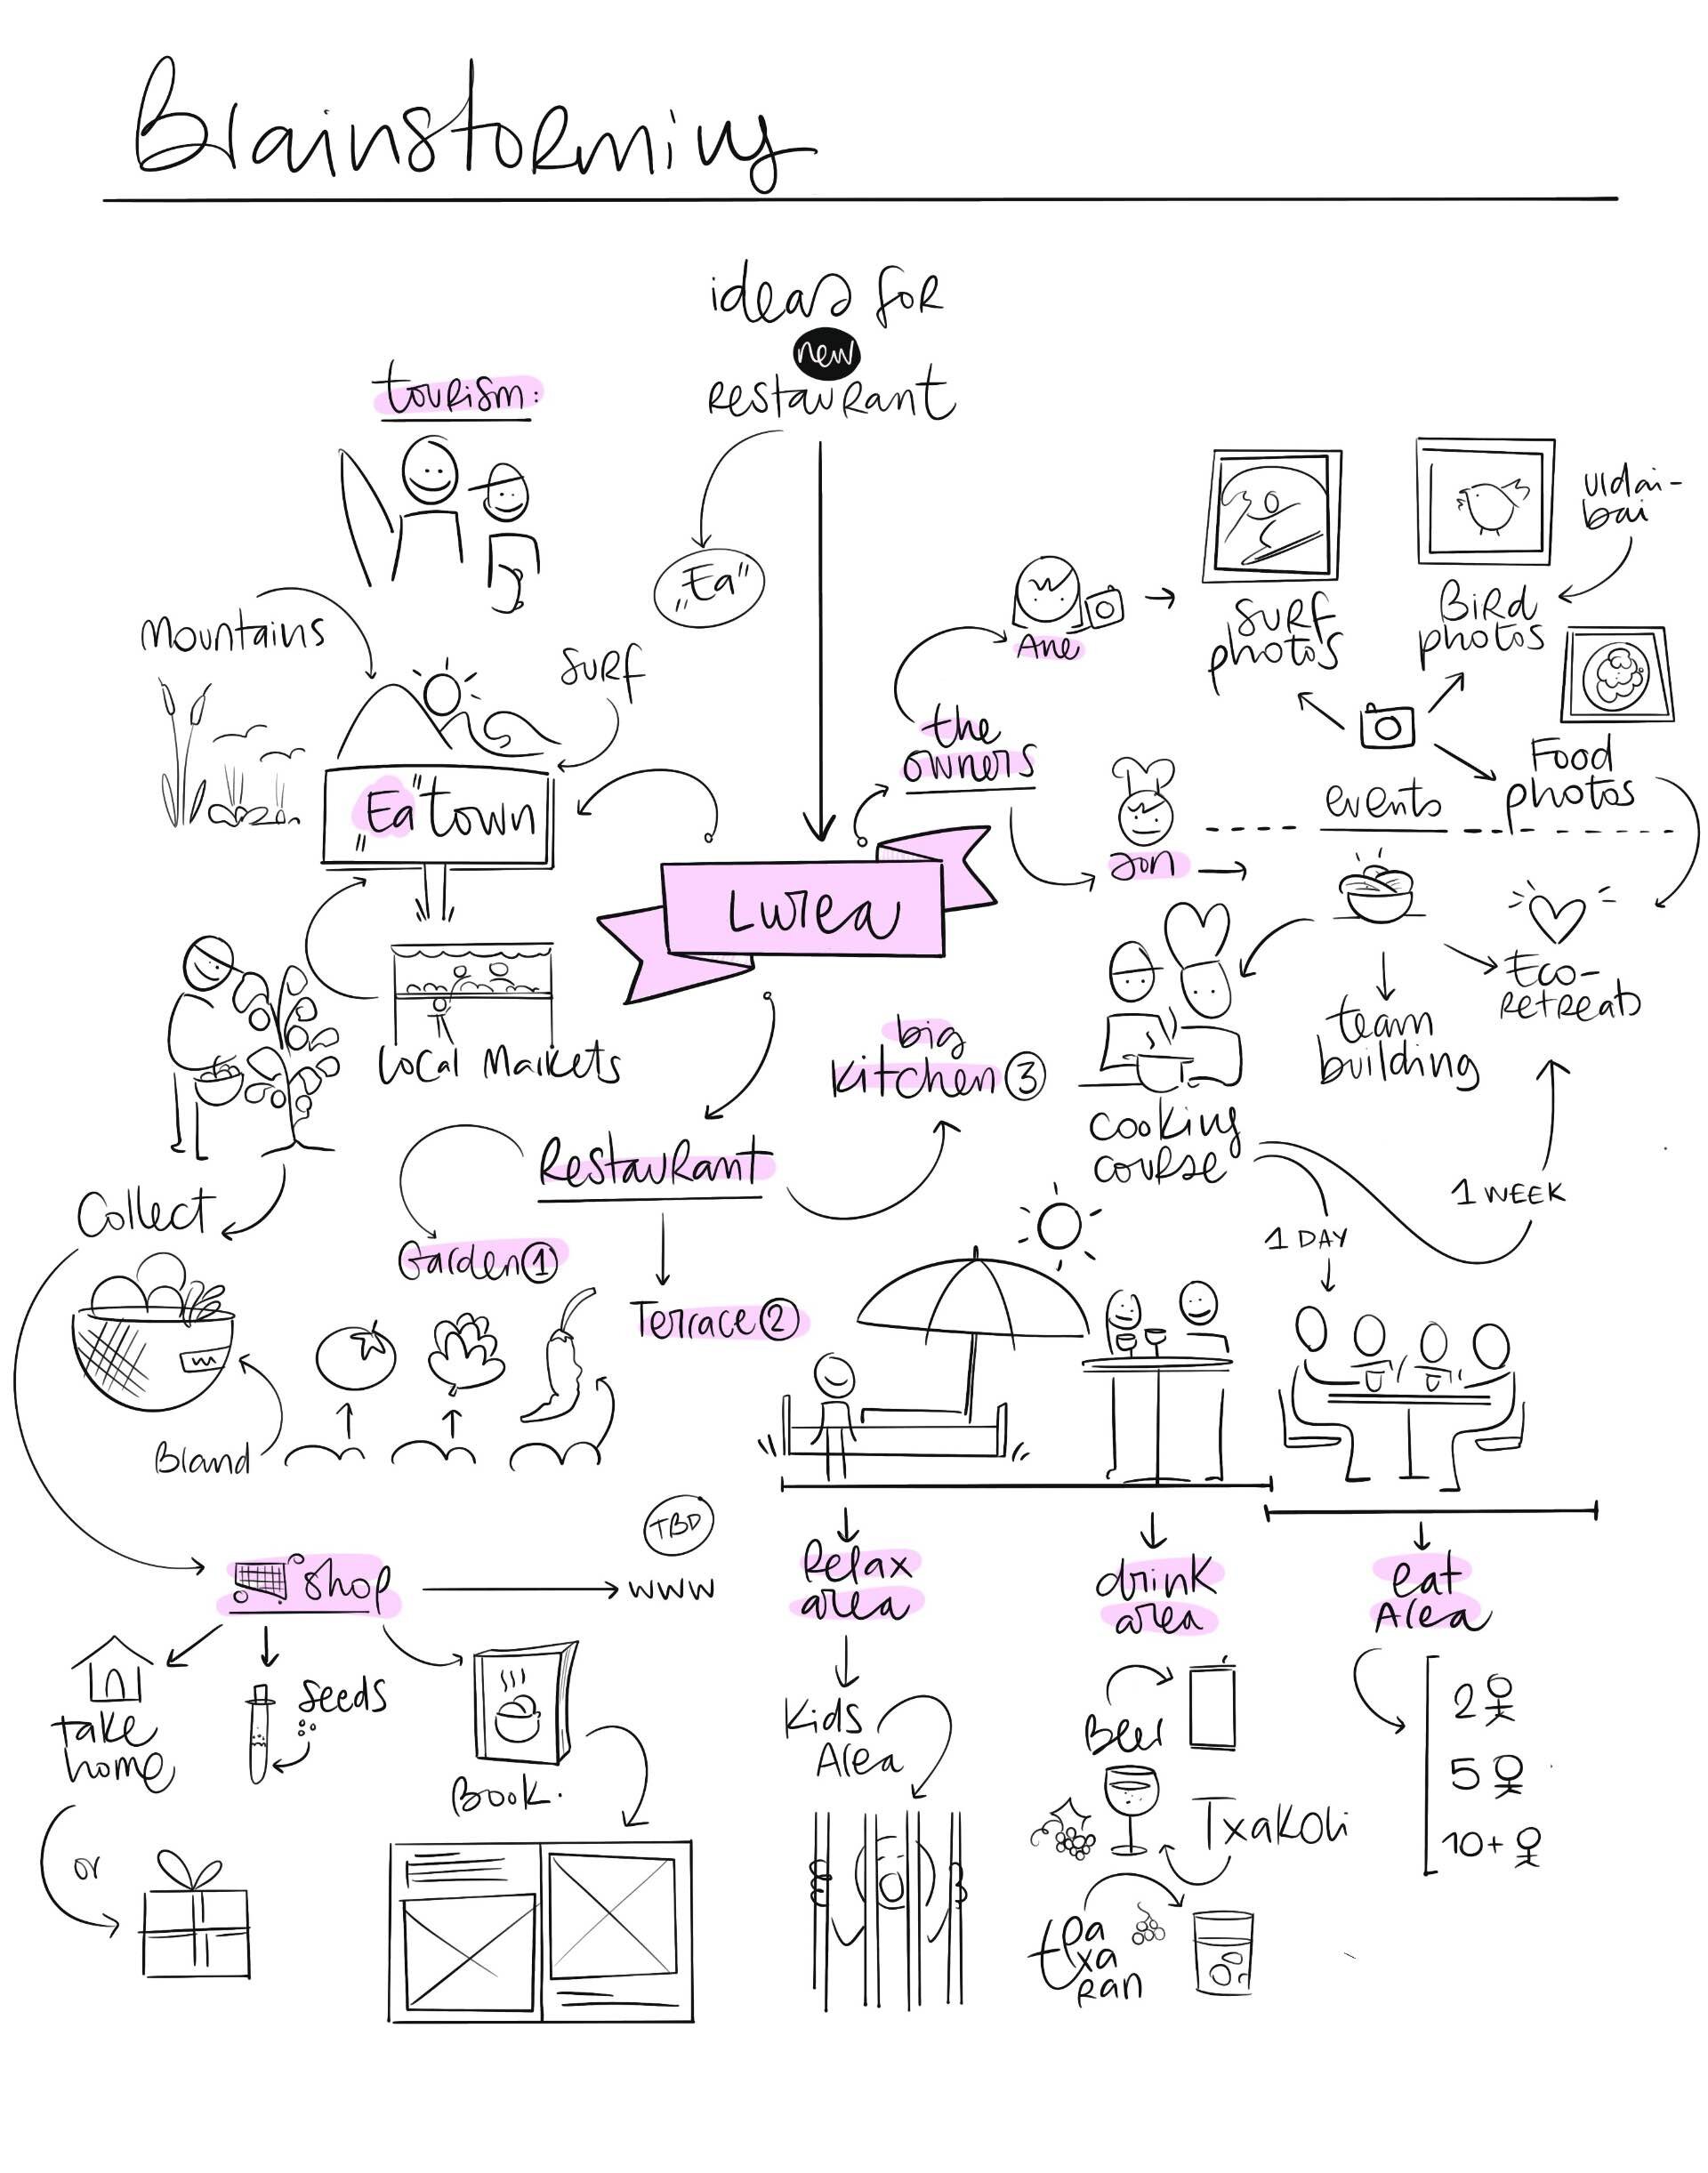 Brainstorming
ideas for
new
restaurant
tourism:
„Ea"
Mountains
surf
„Ea" town
Local Markets
Lurea
the
owners
Ane
surf
photos
Bird
photos
Urdai-
bai
Food
photos
events
Jon
cooking
course
team
building
Eco-
retreats
1 WEEK
1 DAY
Restaurant
big
kitchen 3
Garden 1
Terrace 2
Collect
Brand
shop
TBD
www
take
home
or
seeds
Book.
Relax
area
Kids
Area
drink
area
Beer
Txakoli
pa
txa
ran
eat
Area
2
5
10+